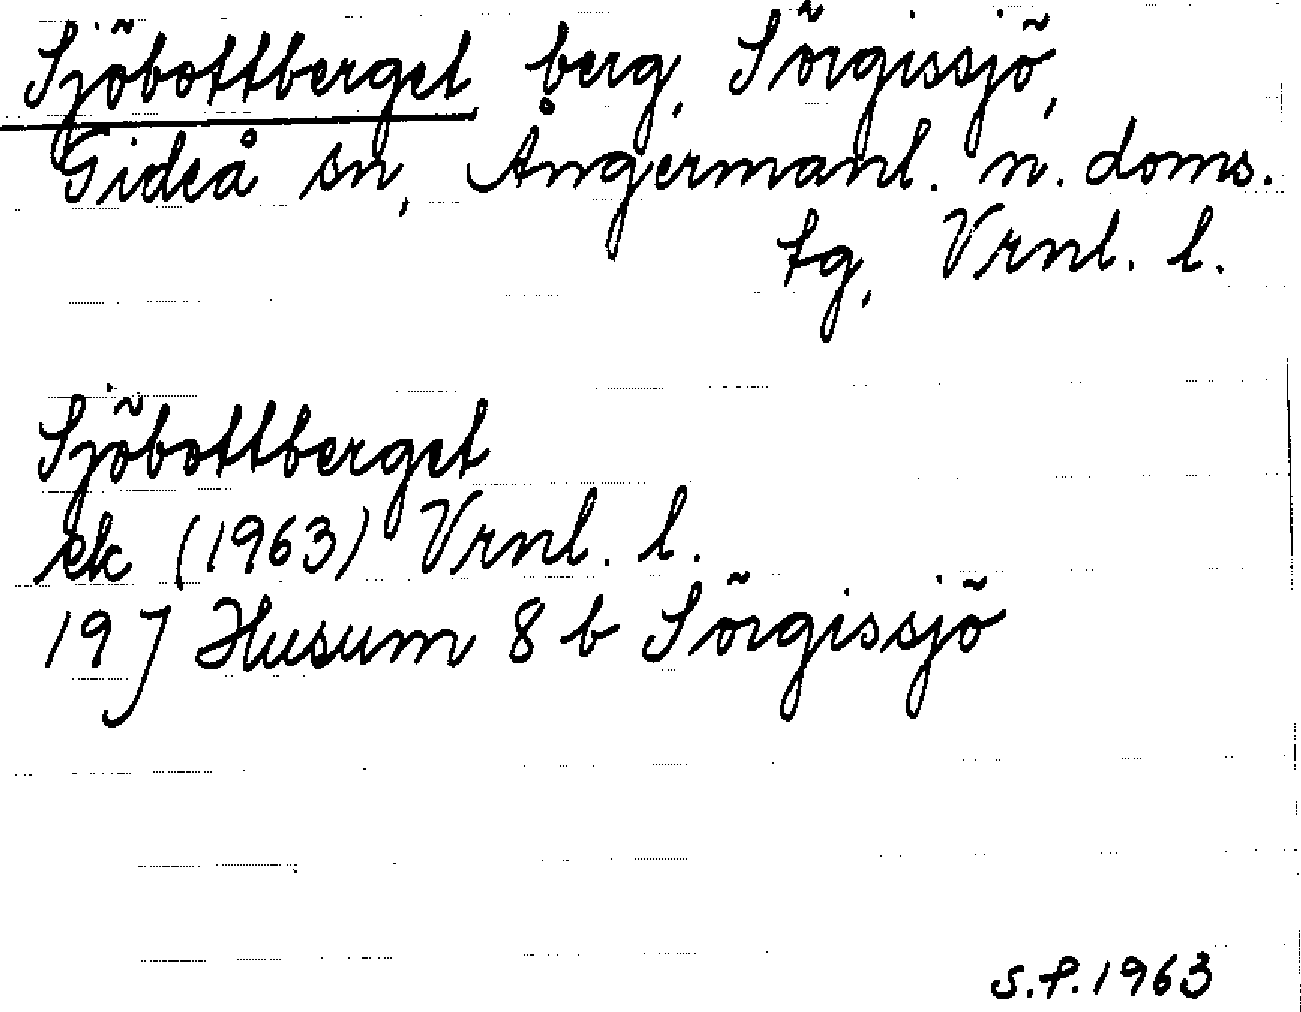 Sjöbottberget, berg, Sörgissjö,
Gideå sn, Ångermanl. n. doms.
tg, Vrnl. l.
Sjöbottberget
ek (1963) Vrnl. l.
19 J Husum 8 b Sörgissjö
S.P. 1963